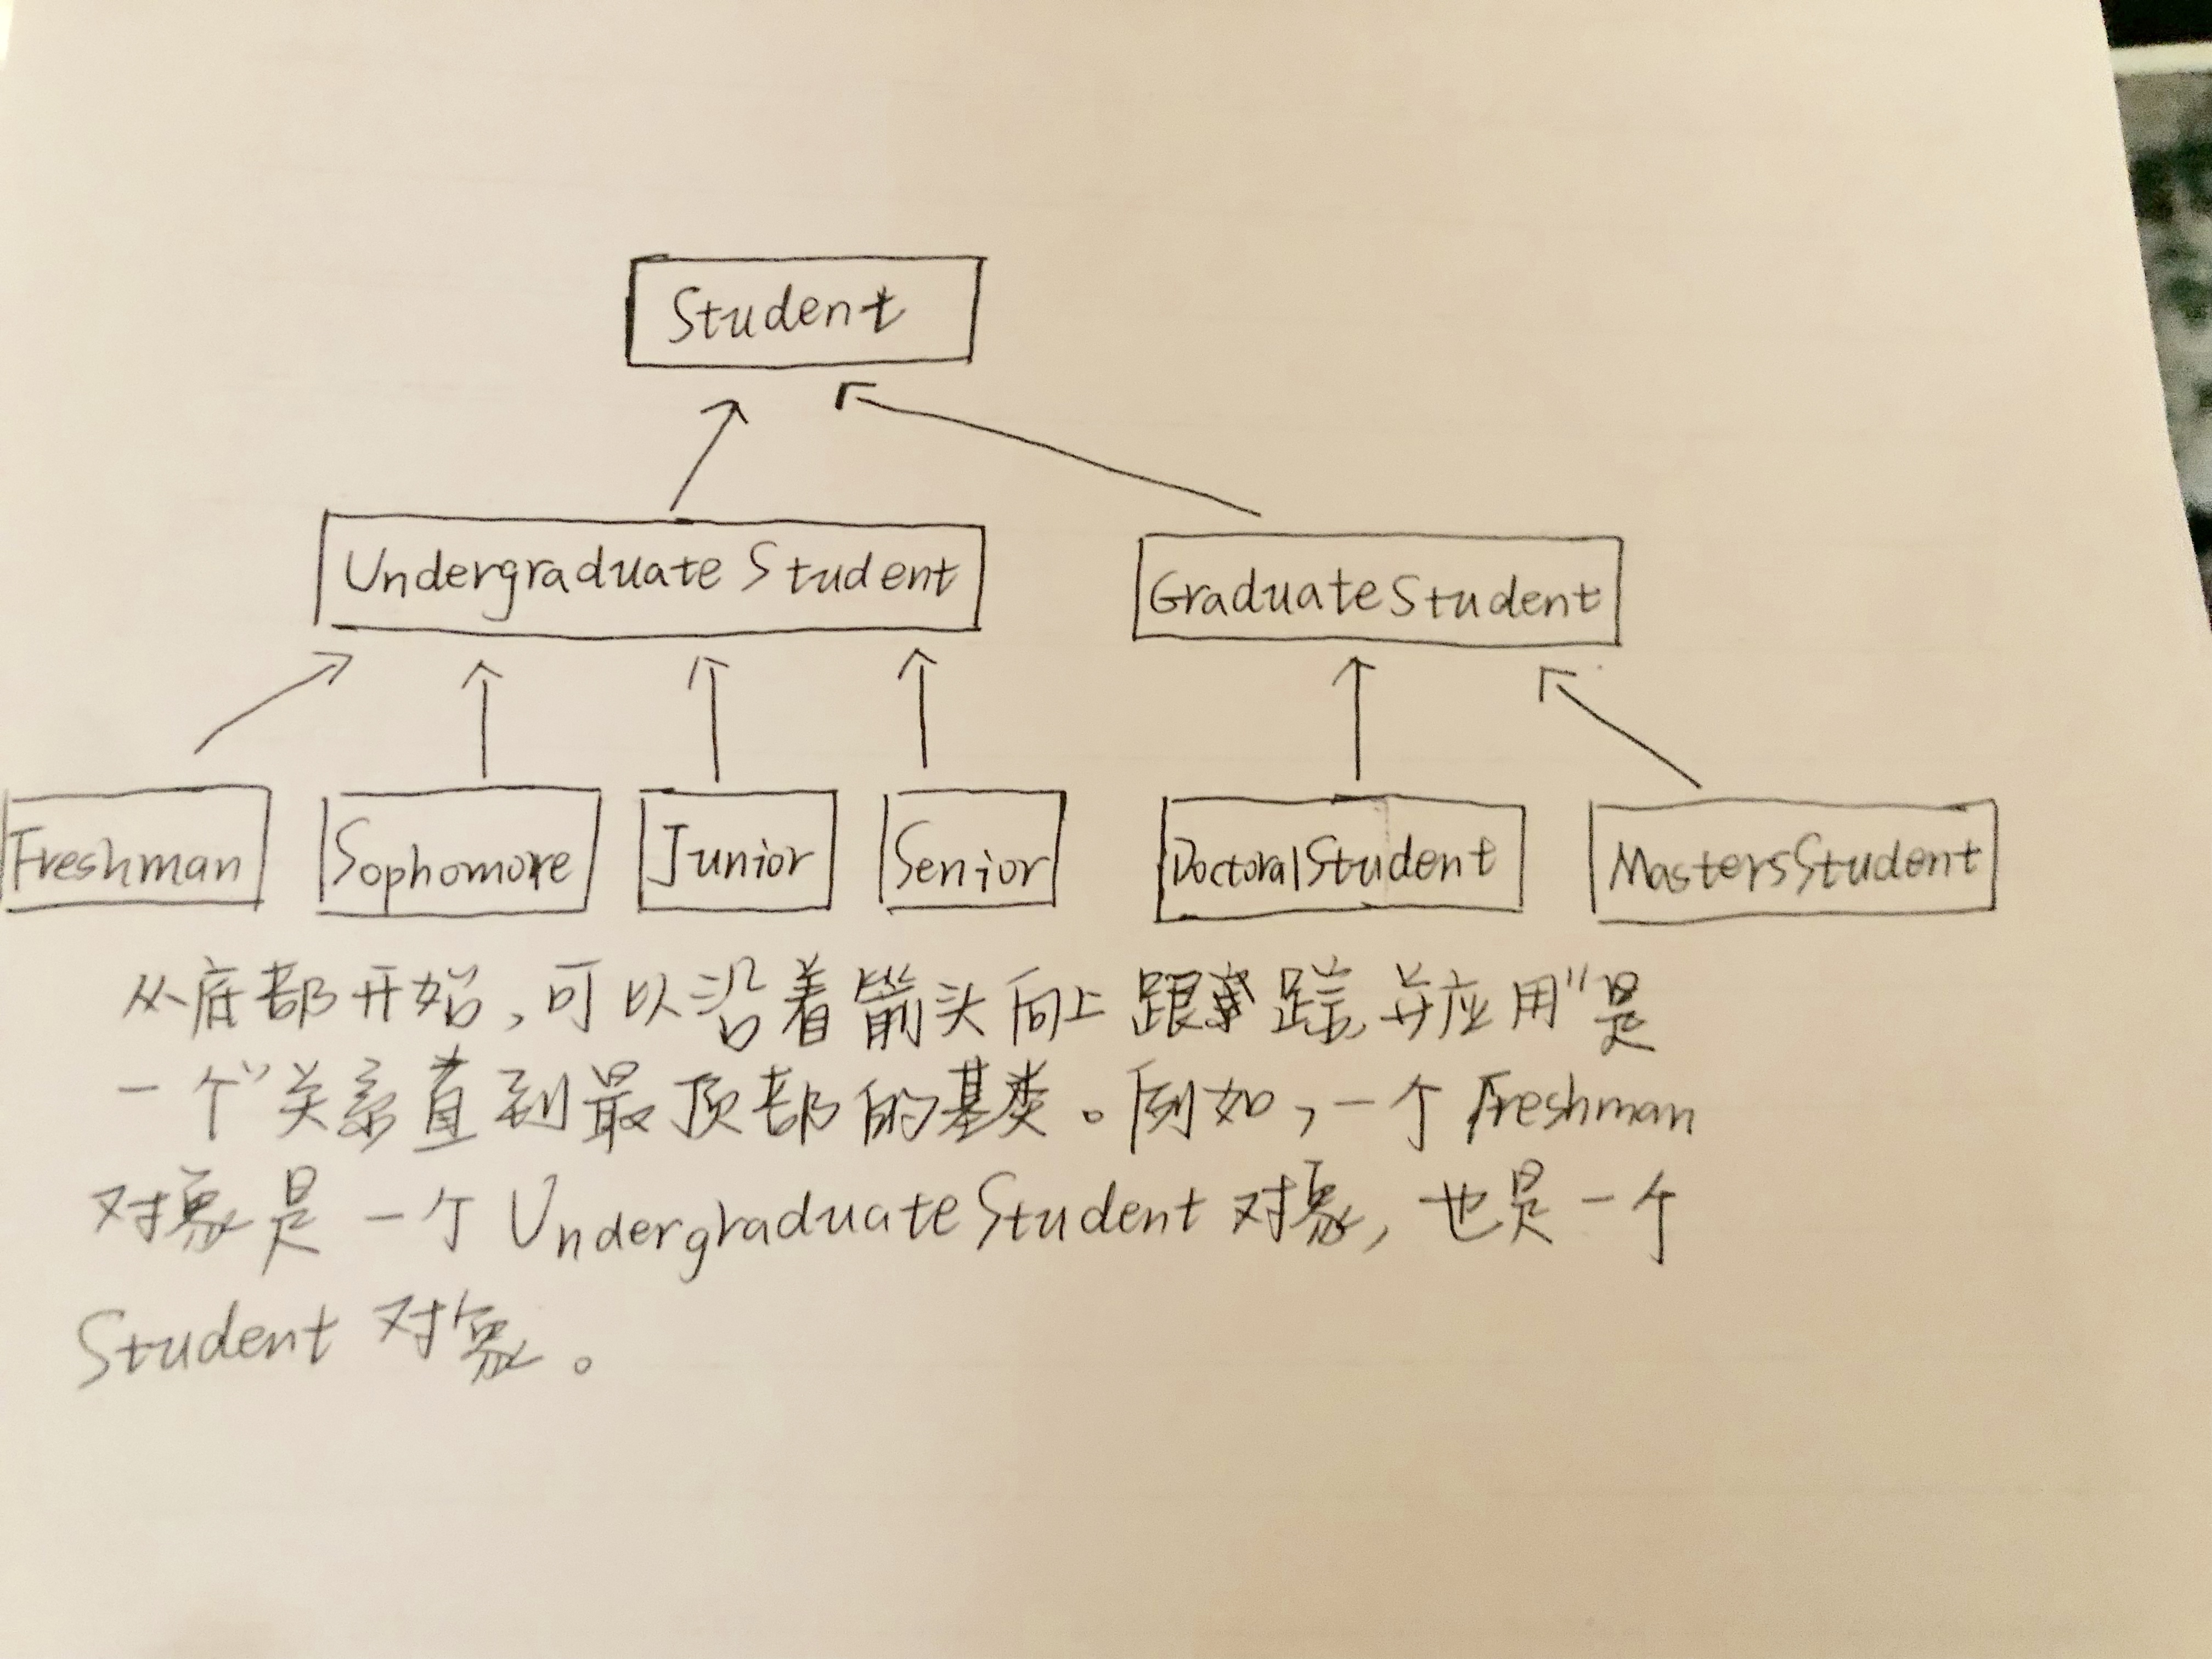 Student
Undergraduate Student
GraduateStudent
Freshman
Sophomore
Junior
Senior
DoctoralStudent
MastersStudent
从底部开始,可以沿着箭头向上跟踪,并应用“是
一个”关系直到最顶部的基类。例如,一个Freshman
对象是一个UndergraduateStudent对象,也是一个
Student对象。